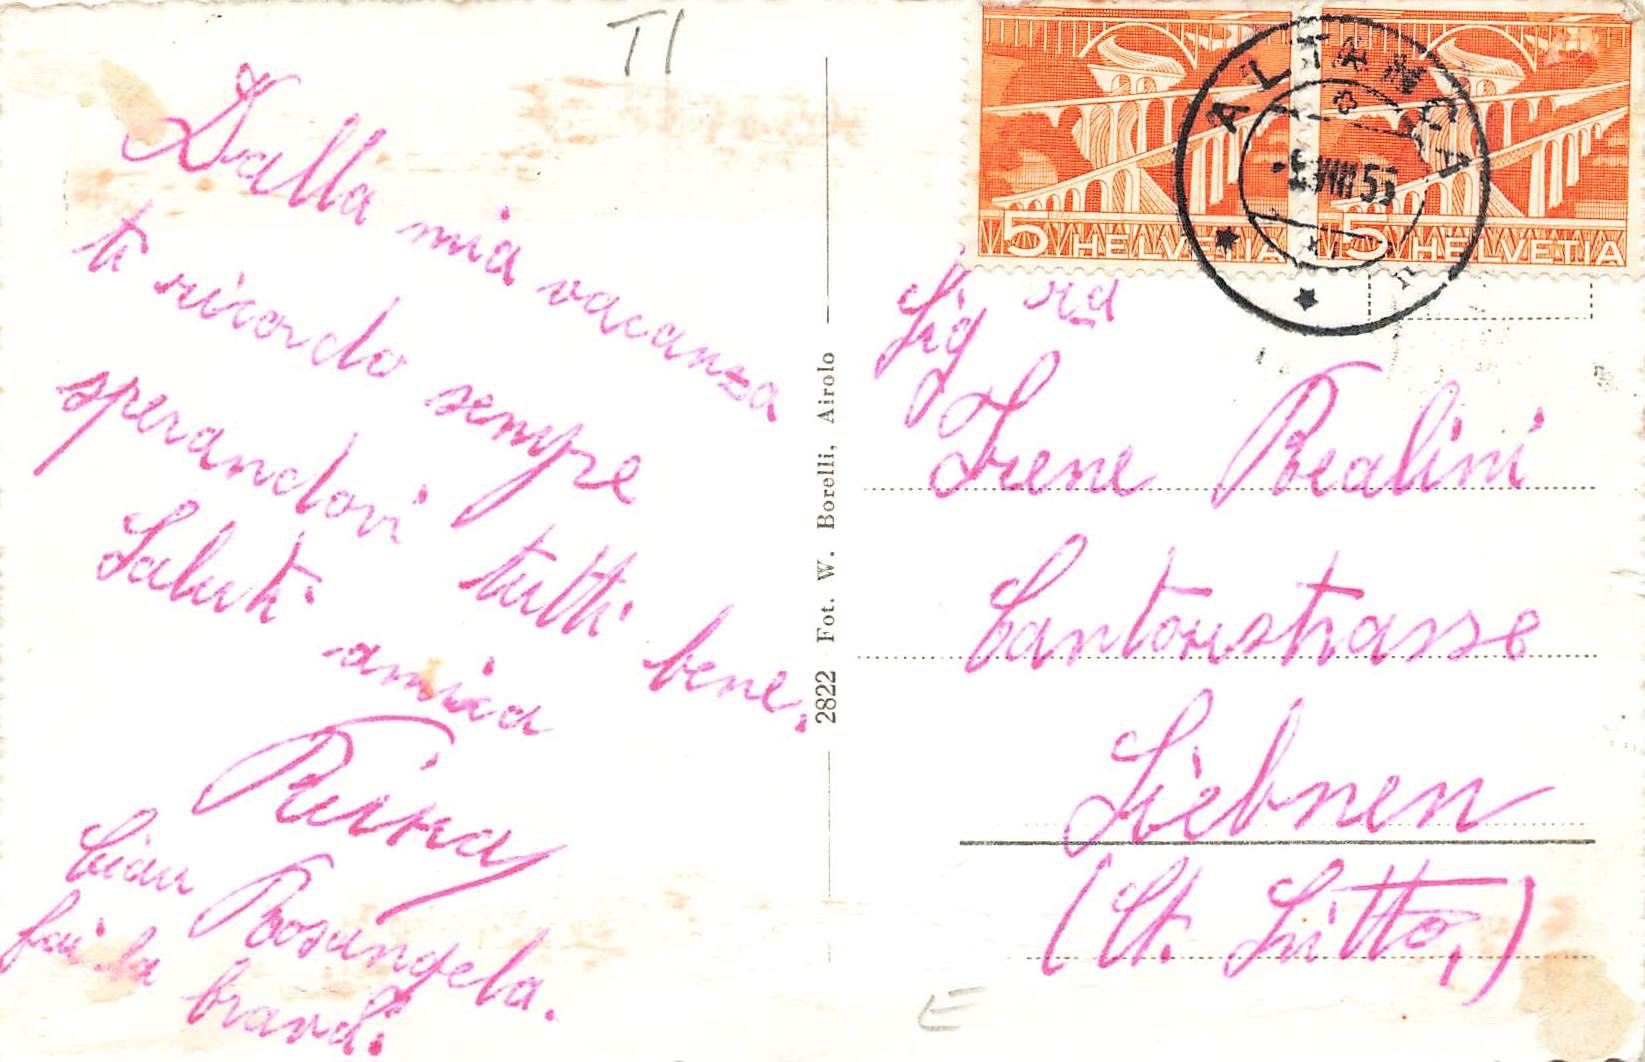 TI
Dalla mia vacanza
ti ricordo sempre
sperandovi tutti bene.
Saluti
amica
Rina
Ciau Rosangela.
fai la brava.
2822 Fot. W. Borelli, Airolo
5 HELVETIA
5 HELVETIA
VIII 55
Sig ra
Irene Realini
Cantonstrasse
Siebnen
(Ct. Svitto,)
E